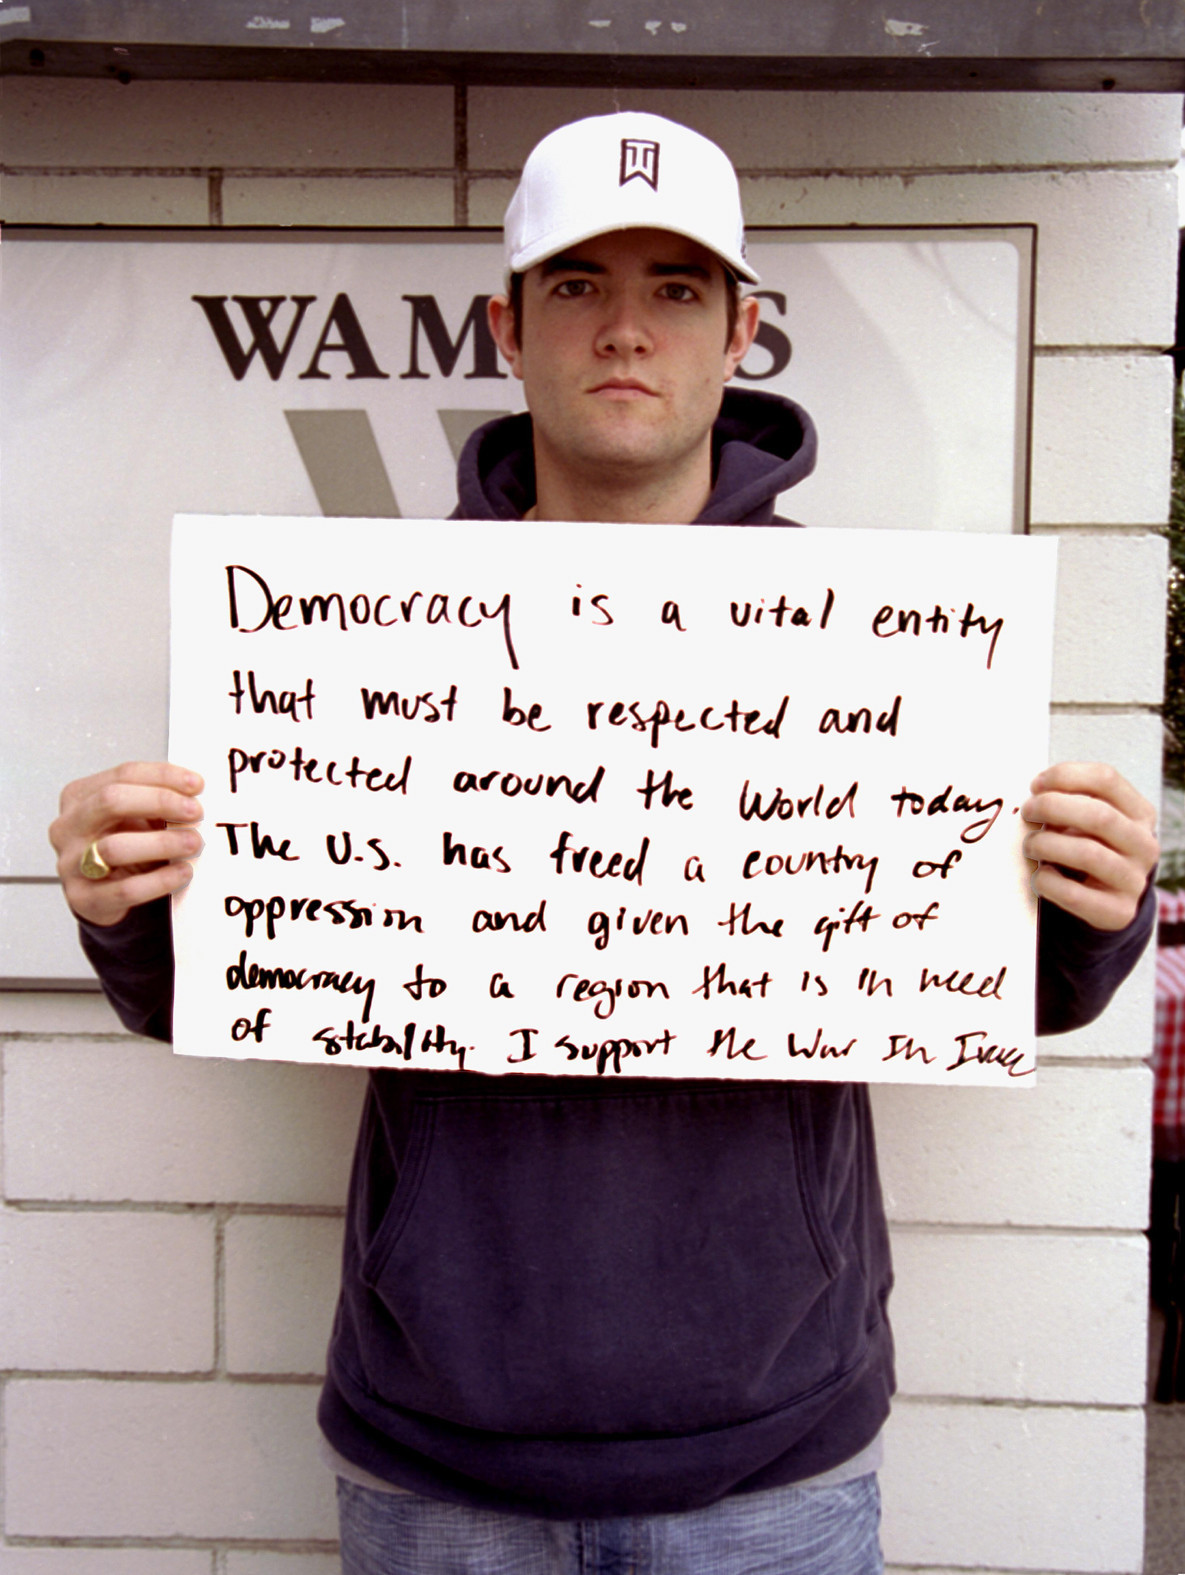 TW
WAM S
Democracy is a vital entity
that must be respected and
protected around the World today.
The U.S. has freed a country of
oppression and given the gift of
democracy to a region that is in need
of stability. I support the War In Iraq